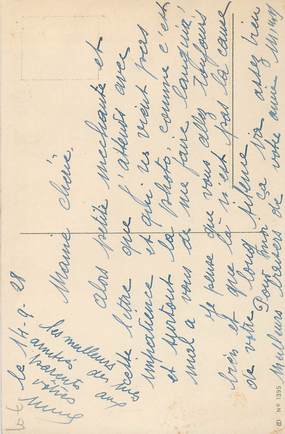 le 14-9-28
Mamie chérie,
Alors petite méchante et
cette lettre que j'attends avec
impatience et qui ne vient pas
et surtout la photo, comme c'est
mal à vous de me faire languir,
Je pense que vous allez toujours
bien et que là n'est pas la cause
de votre long silence
Pour moi ça va assez bien
Meilleurs baisers de votre amie
les meilleurs
amitiés des miens
aux
parents
vôtres
N° 1395